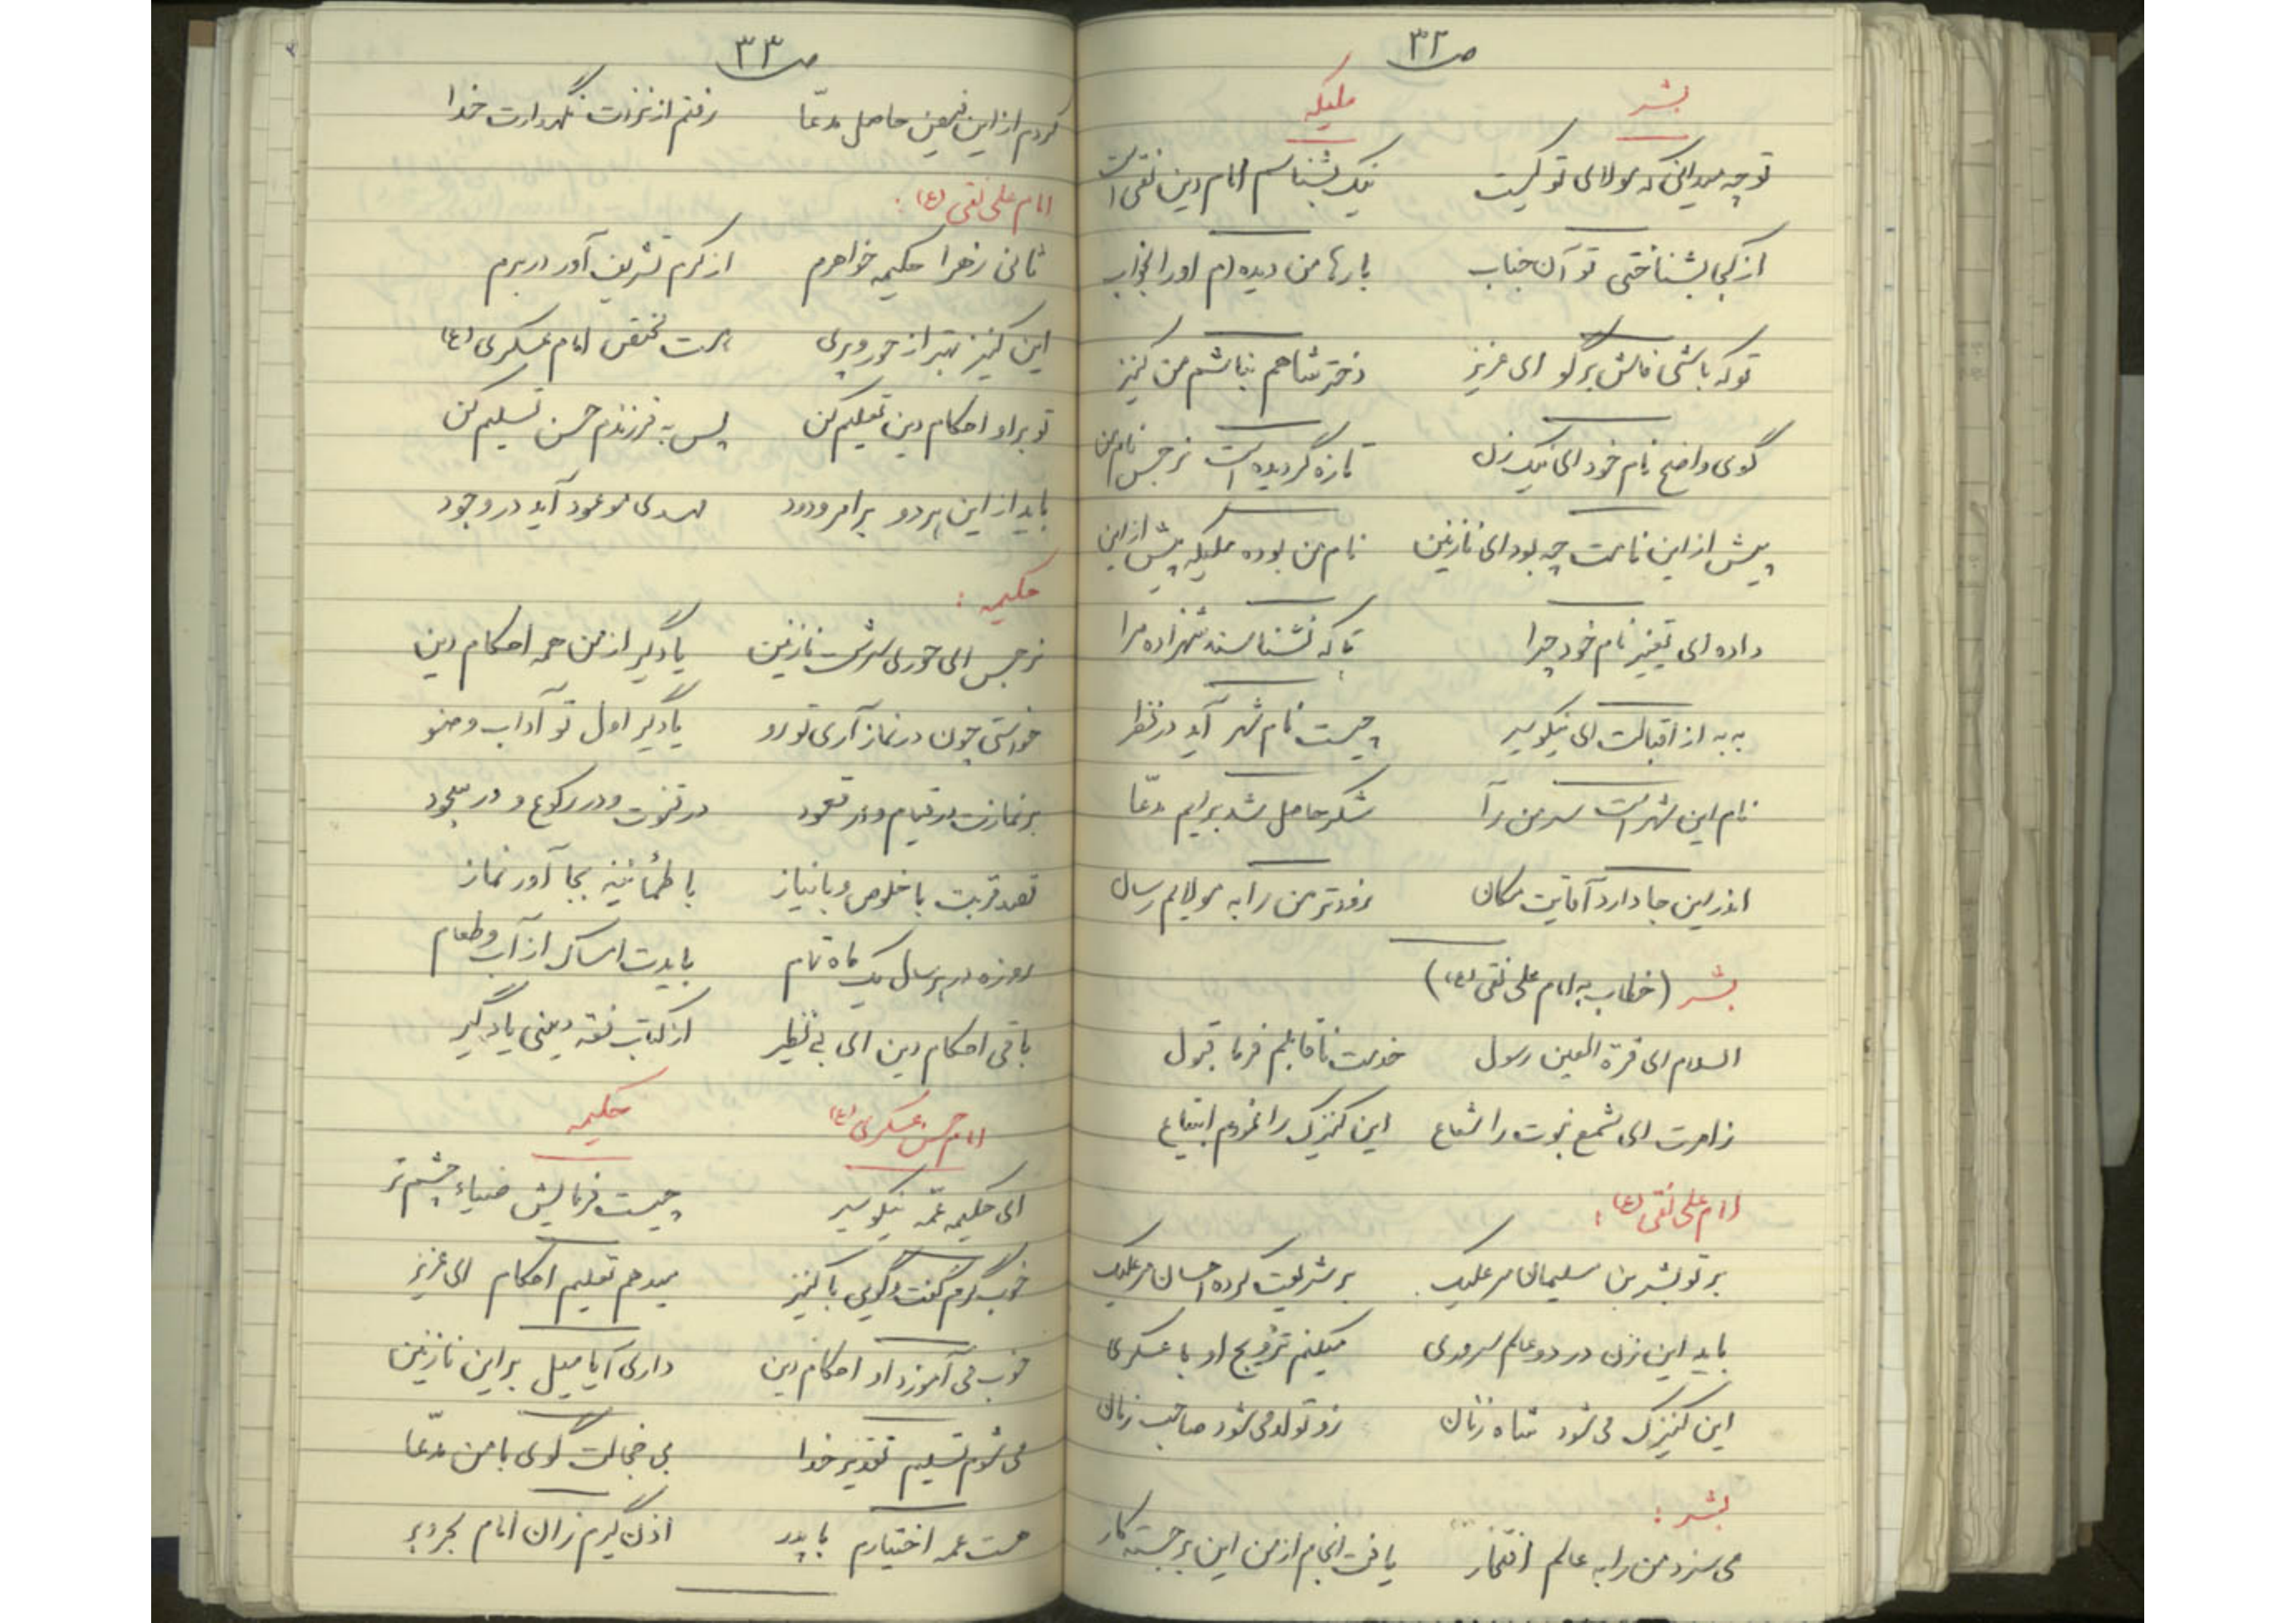 ص ۳۲
بشر ملیکه
تو چه میدانی که مولای تو کیست نیک بشناسم امام دین نقی است
از کجا بشناختی تو آن جناب بارها من دیده ام او را بخواب
تو که باشی فاش برگو ای عزیز دختر شاهم نباشم من کنیز
گوی واضح نام خود ای نیک زن تازه گردیده است نرجس نام من
پیش از این نامت چه بود ای نازنین نام من بوده ملیکه پیش از این
داده ای تغییر نام خود چرا تا که نشناسند شهزاده مرا
به به از اقبالت ای نیکو سیر چیست نام شهر آید در نظر
نام این شهر است سر من رآ شکر حاصل شد برایم مدّعا
اندر این جا دارد آقایت مکان زودتر من را به مولایم رسان
بشر (خطاب به امام علی نقی (ع))
السلام ای قرة العین رسول خدمت ناقابلم فرما قبول
ز امرت ای شمع نبوت را شعاع این کنیزک را نمودم ابتیاع
امام علی نقی (ع) :
بر تو بشر بن سلیمان مر علیک بر شریعت کرده احسان مر علیک
باید این زن در دو عالم سروری میکنم تزویج او با عسکری
این کنیزک می شود شاه زنان زو تولد می شود صاحب زمان
بشر :
می سزد من را به عالم افتخار یافت انجام از من این برجسته کار
ص ۳۳
کردم از این فیض حاصل مدّعا رفتم از نزدت نگهدارت خدا
امام علی نقی (ع) :
ثانی زهرا حکیمه خواهرم از کرم تشریف آور در برم
این کنیز بهتر از حور و پری هست مختص امام عسکری (ع)
تو بر او احکام دین تعلیم کن پس به فرزندم حسن تسلیم کن
باید از این هر دو بر امر ودود مهدی موعود آید در وجود
حکیمه :
نرجس ای حوری سرشت نازنین یادگیر از من همه احکام دین
خواستی چون در نماز آری تو رو یادگیر اول تو آداب وضو
بر نمازت در قیام و در قعود در قنوت و در رکوع و در سجود
قصد قربت با خلوص و با نیاز با طمأنینه بجا آور نماز
روزه در هر سال یک ماه تمام بایدت امساک از آب و طعام
باقی احکام دین ای بی نظیر از کتاب فقه دینی یادگیر
امام حسن عسکری (ع) حکیمه
ای حکیمه عمّه نیکو سیر چیست فرمایش ضیاء چشم تر
خوب گرم گفت و گویی با کنیز میدهم تعلیم احکام ای عزیز
خوب می آموزد او احکام دین داری آیا میل بر این نازنین
می شوم تسلیم تقدیر خدا بی خجالت گوی با من مدّعا
هست عمه اختیارم با پدر اذن گیرم زان امام بحر و بر